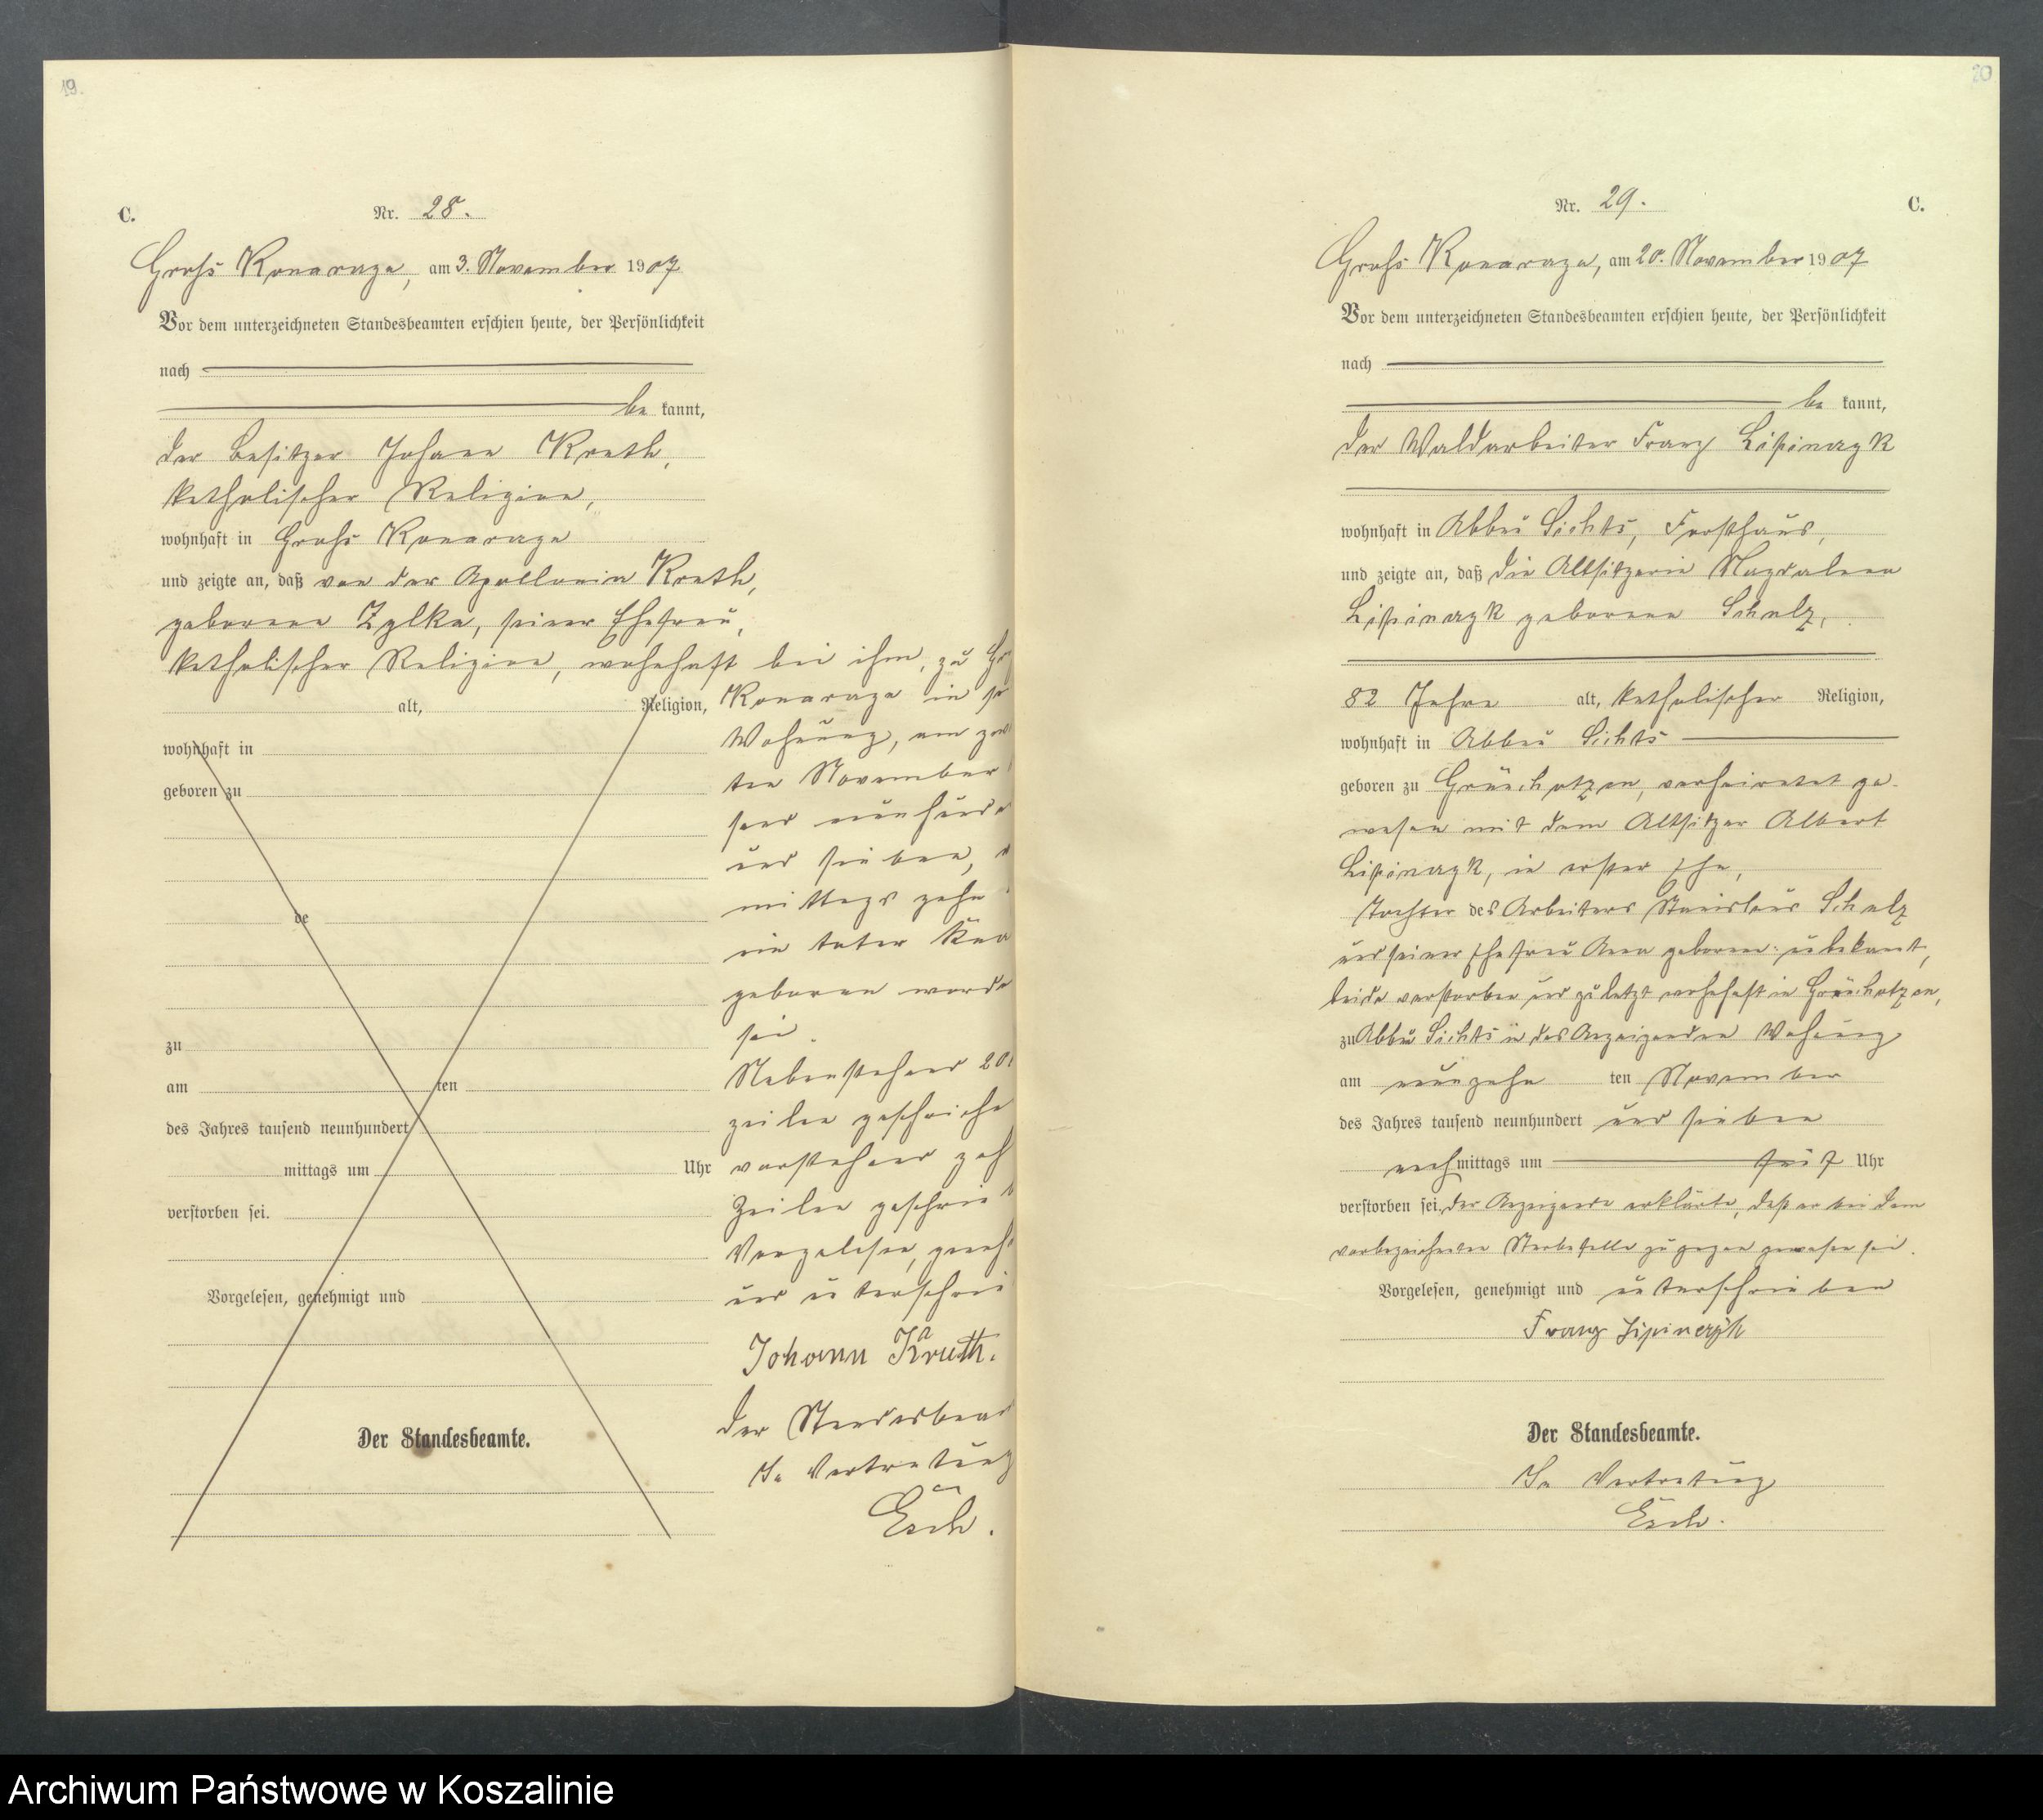 19.
C.
Nr. 28.
Groß Konarzyn, am 3. November 1907
Vor dem unterzeichneten Standesbeamten erschien heute, der Persönlichkeit
nach
be kannt,
der Besitzer Johann
katholischer Religion,
wohnhaft in Groß Konarzyn
und zeigte an, daß von der Apollonia
geborene Zylka, seiner Ehefrau,
katholischer Religion, wohnhaft bei ihm, zu Gr
alt, Religion,
wohnhaft in
geboren zu
de
zu
am ten
des Jahres tausend neunhundert
mittags um Uhr
verstorben sei.
Vorgelesen, genehmigt und
Der Standesbeamte.
in
Wohnung, am zwei
ten November
send neunhund
und sieben,
mittags zehn
ein toter Kna
geboren worde
sei.
Nebenstehend 20
zeilen gestriche
vorstehend
Zeilen geschrie
Vorgelesen, geneh
und unterschrie
Johann Kruth.
Der Standesbeam
In Vertretung
Esch.
20
Nr. 29.
C.
Groß Konarzyn, am 20. November 1907
Vor dem unterzeichneten Standesbeamten erschien heute, der Persönlichkeit
nach
be kannt,
der Waldarbeiter Franz
wohnhaft in Abbau Lichts, Forsthaus,
und zeigte an, daß die Altsitzerin Magdalena
geborene Schulz,
82 Jahre alt, katholischer Religion,
wohnhaft in Abbau Lichts
geboren zu Grünchotzen, verheiratet ge-
wesen mit dem Altsitzer Albert
in erster Ehe,
Tochter des Arbeiters Stanislaus Schulz
und seiner Ehefrau Anna geborene: unbekannt,
beide verstorben und zuletzt wohnhaft in Grünchotzen,
zu Abbau Lichts in des Anzeigenden Wohnung
am neunzehn ten November
des Jahres tausend neunhundert und sieben
nach mittags um Uhr
verstorben sei, der Anzeigende erklärte, daß er bei dem
vorbezeichneten Sterbefalle zugegen gewesen sei.
Vorgelesen, genehmigt und unterschrieben
Franz
Der Standesbeamte.
In Vertretung
Esch.
Archiwum Państwowe w Koszalinie